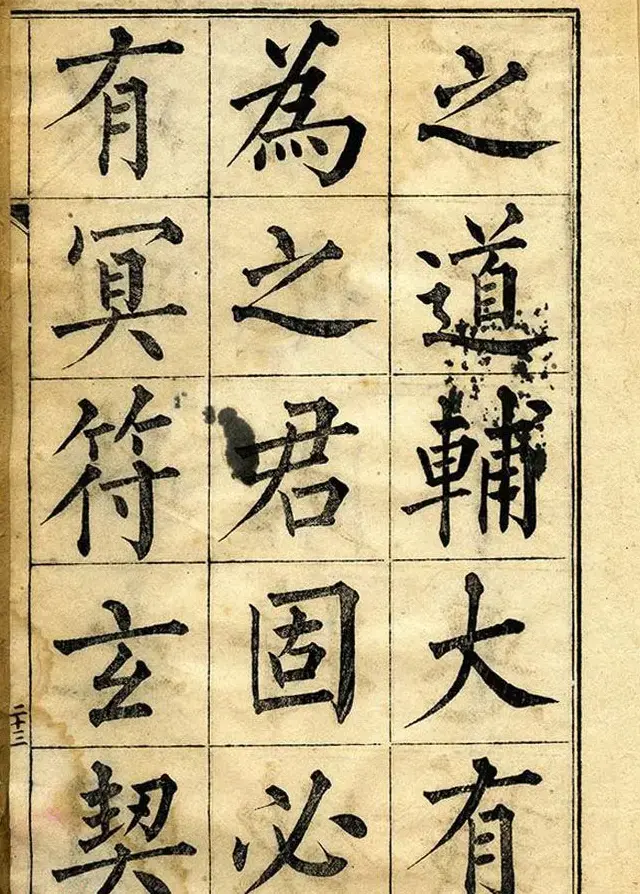 之道輔大有
為之君固必
有冥符玄契
二十三